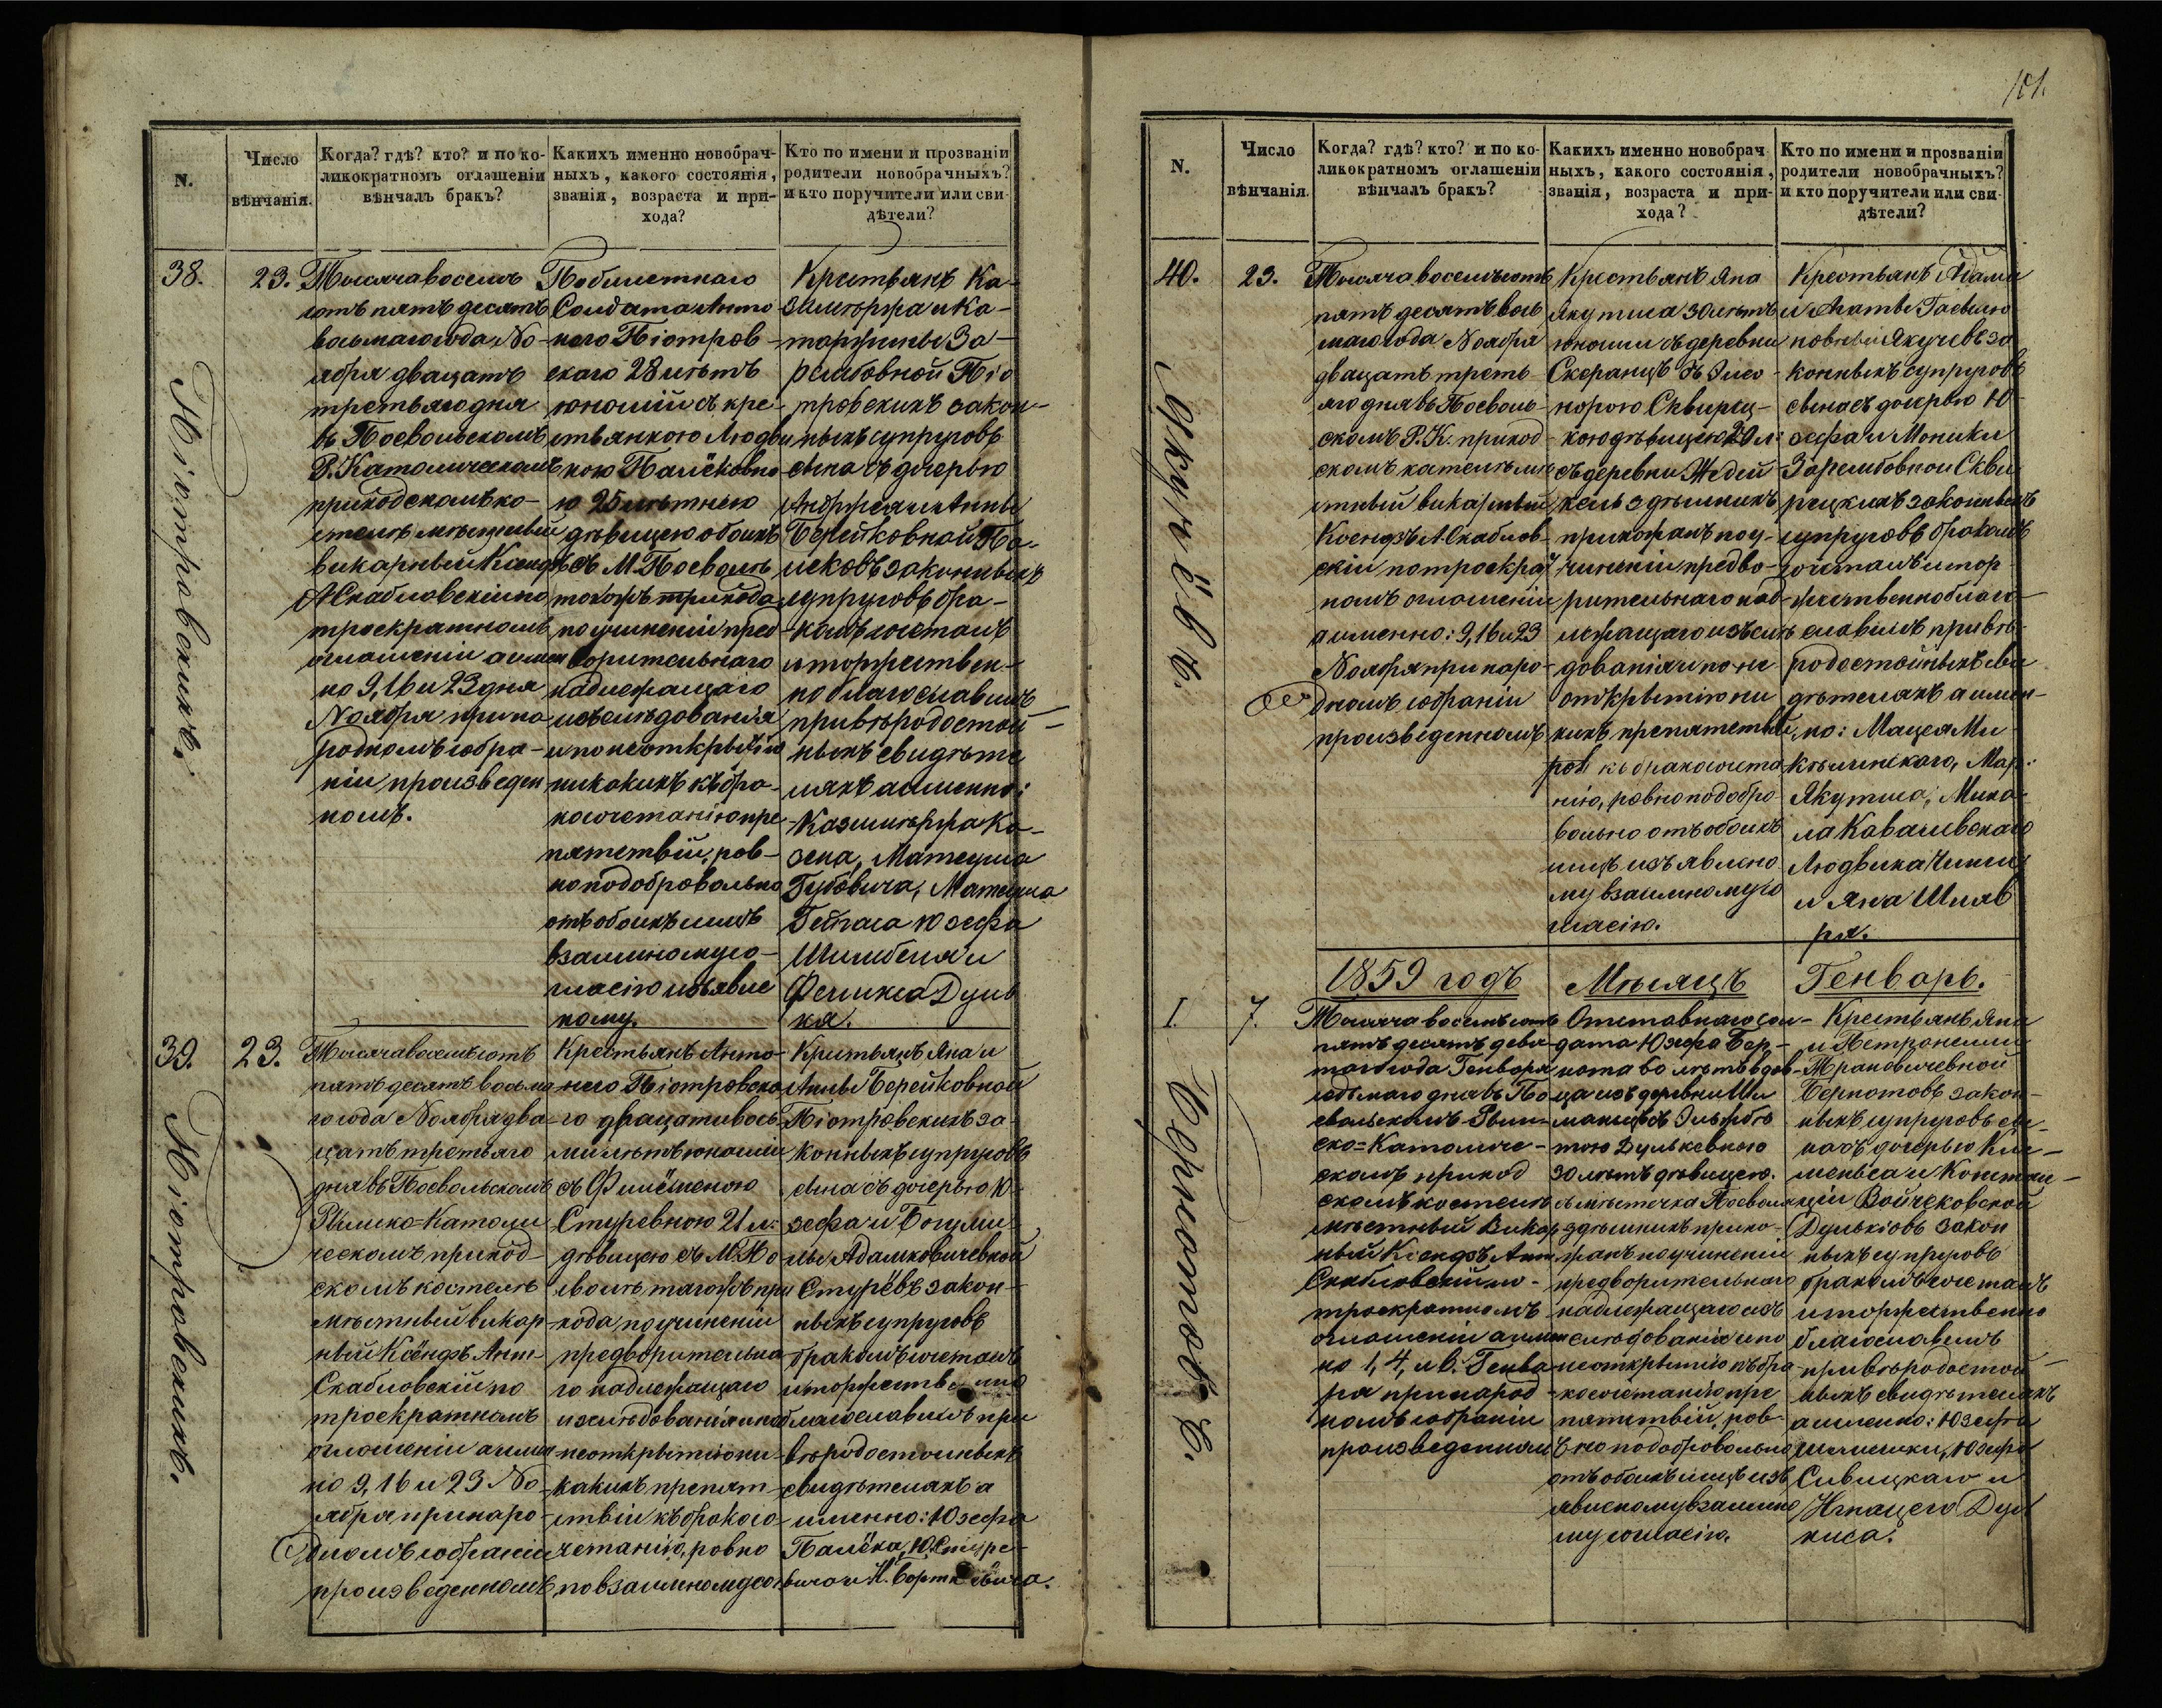 N.
Число
вѣнчанія.
Когда? гдѣ? кто? и по ко-
ликократномъ оглашеніи
вѣнчалъ бракъ?
Какихъ именно новобрач-
ныхъ, какого состоянія,
званія, возраста и при-
хода?
Кто по имени и прозванію
родители новобрачныхъ?
и кто поручители или сви-
дѣтели?
38.
23.
Піотровскихъ.
Тысяча восемъ
сотъ пять десятъ
восьмаго года, Но-
ября двацать
третьяго дня
въ Поевольскомъ
Р. Католическомъ
приходскомъ ко-
стелѣ мѣстный
викарный Ксендзъ
А Скабловскій по
троекратномъ
оглашеніи а имен
но 9, 16 и 23 дня
Ноября при на
родномъ собра-
ніи произведен
номъ.
Солдата Анто
ного Піотров
скаго 28 лѣтъ
юношій съ кре-
стьянкою Людви
кою Палёковно
ю 25 лѣтнею
дѣвицею обоихъ
съ М. Поеволь
тогожъ прихода
по учиненіи пред
варительнаго
надлежащаго
изслѣдованія
и по неоткрытію
никакихъ къ бра-
косочетанію пре
пятствій, рав-
но по добровольно
отъ обоихъ лицъ
взаимному со-
гласію изъявле
ному.
Крестьянъ Ка-
зимѣржа и Ка-
таржины За-
рембовной Піо
тровскихъ закон-
ныхъ супруговъ
сына съ дочерью
Андржея и Анны
Берейковной Па-
лековъ законныхъ
супруговъ бра-
комъ сочеталъ
и торжествен-
но благославилъ
при вѣродостой-
ныхъ свидѣте
ляхъ а именно:
Казимѣржа Ко-
зека, Матеуша
Губовича, Матеуша
Юзефа
Шимбеля и
Феликса Дуль
кя.
39.
23.
Піотровскихъ.
Тысяча восемъ сотъ
пять десятъ восьма
го года Ноября два-
цать третьяго
дня въ Поевольскомъ
Римско=Католи
ческомъ приход-
скомъ костелѣ
мѣстный викар
ный Ксёндзъ Ант
Скабловскій по
троекратномъ
оглашеніи а имен
но 9, 16 и 23 Но
ября при наро-
дномъ собраніи
произведенномъ
Крестьянъ Анто-
него Піотровска
го двацативось
ми лѣтъ юношій
съ Филёменою
Стуревною 21 л:
дѣвицею съ М. По
еволь, тогожъ при
хода, по учиненіи
предварительна
го надлежащаго
изслѣдованія и по
неоткрытію ни-
какихъ препят-
ствій къ бракосо-
четанію, равно
по взаимному со
Крестьянъ Яна и
Анны Берейковной
Піотровскихъ за-
конныхъ супруговъ
сына съ дочерью Ю-
зефа и Богуми
лы Адамковичевной
Стурёвъ закон-
ныхъ супруговъ
бракомъ сочеталъ
и торжественно
благославилъ при
вѣродостойныхъ
свидѣтеляхъ а
именно: Юзефа
Палёка, Ю. Стуре-
вича и М. Борткевича.
101.
N.
Число
вѣнчанія.
Когда? гдѣ? кто? и по ко-
ликократномъ оглашеніи
вѣнчалъ бракъ?
Какихъ именно новобрач
ныхъ, какого состоянія,
званія, возраста и при-
хода?
Кто по имени и прозванію
родители новобрачныхъ?
и кто поручители или сви-
дѣтели?
40.
23.
Якучёвъ.
Тысяча восемъ сотъ
пять десятъ вось
маго года Ноября
двацать треть
яго дня въ Поеволь-
скомъ Р. К. приход
скомъ костелѣ мѣ
стный викарный
Ксендзъ А Скаблов-
скій по троекрат
номъ оглашеніи
а именно: 9, 16 и 23
Ноября при наро-
дномъ собраніи
произведенномъ
Крестьянъ Яна
Якутиса 30 лѣтъ
юноши съ деревни
Скеранцъ съ Элео-
норою Сквирец-
кою дѣвицею 20 л:
съ деревни
кель здѣшнихъ
прихожанъ по у-
чиненіи предва-
рительнаго над-
лежащаго изслѣ
дованія и по не
открытію ни
кихъ препятствій
къ бракосочета
нію, равно по добро
вольно отъ обоихъ
лицъ изъявлено
му взаимному со
гласію.
Крестьянъ Адама
и Агаты
Якучёвъ за
конныхъ супруговъ
сына съ дочерью Ю
зефа и Моники
Зарембовной Скви
рецкихъ законныхъ
супруговъ бракомъ
сочеталъ и тор
жественно благо
славилъ при вѣ-
родостойныхъ сви
дѣтеляхъ а имен-
но: Мацея Ми
Якутиса, Миха
ла Ковалевскаго
Людвика
и Яна Шляв
ря.
1859 годъ Мѣсяцъ Генварь.
1.
7.
Бернотовъ.
Тысяча восемъ сотъ
пять десятъ девя
таго года Генваря
седьмаго дня въ По
евольскомъ Рим
ско=Католиче-
скомъ приход
скомъ костелѣ
мѣстный Викар
ный Ксендзъ Ант
Скабловскій по
троекратномъ
оглашеніи а имен
но 1, 4, и 6. Генва
ря при народ
номъ собраніи
произведенномъ
Отставнаго сол-
дата Юзефа Бер-
нота 60 лѣтъ вдов-
ца изъ деревни Ши
манцъ съ Эльжбѣ
тою Дулькевною
30 лѣтъ дѣвицею.
съ мѣстечка Поеволь
здѣшнихъ прихо-
жанъ по учиненіи
предварительнаго
надлежащаго из
слѣдованія и по
неоткрытію къ бра
косочетанію пре
пятствій, рав-
но по добровольно
отъ обоихъ лицъ изъ
явленому взаимно
му согласію.
Крестьянъ Яна
и Петронелли
Трановичевной
Бернотовъ закон-
ныхъ супруговъ сы-
на съ дочерью Кле-
менса и Констан-
ціи Войчековской
Дулькіовъ закон
ныхъ супруговъ
бракомъ сочеталъ
и торжественно
благославилъ
при вѣродостой-
ныхъ свидѣтеляхъ
а именно: Юзефа
Юзефа
Сивицкаго и
Игнацего Дул
киса.